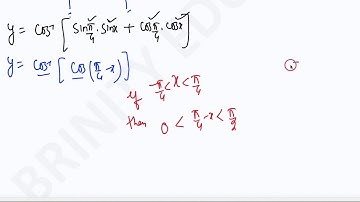 y = cos⁻¹ [ sin π/4 · sinx + cos π/4 · cosx ]
y = cos⁻¹ [ cos (π/4 - x) ]
if -π/4 < x < π/4
then 0 < π/4 - x < π/2
BRINITY EDU